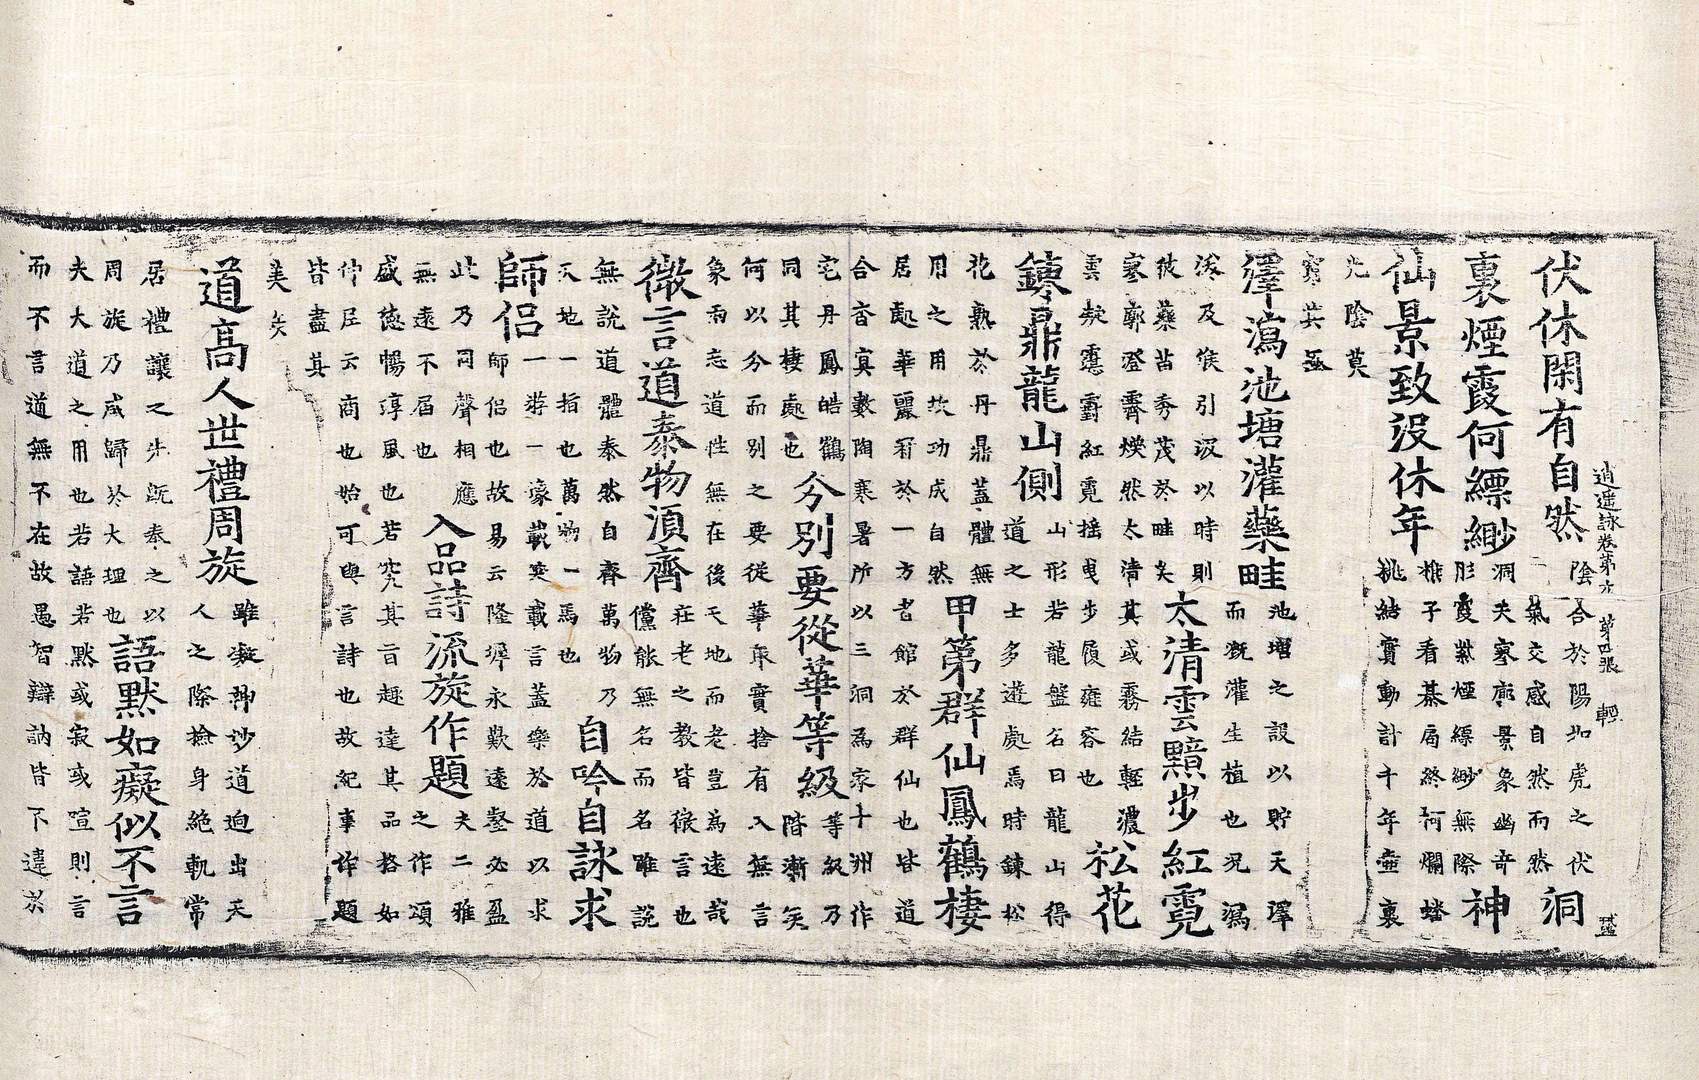 逍遥詠卷第六 第四張 輕
伏休閑有自然
陰合於陽如虎之伏
氣交感自然而然
洞
裏煙霞何縹緲
洞天寥廓景象幽奇
彤霞紫煙縹緲無際
神
仙景致沒休年
樵子看棊局終柯爛蟠
桃結實動計千年壺裏
光陰莫
窮其極
澤瀉池塘灌藥畦
池塘之設以貯天澤
而溉灌生植也況瀉
及引派以時則
彼藥苗秀茂於畦矣
太清雲黯步紅霓
寥廓澄霽煥然太清其或霧結輕濃
雲凝靉霨紅霓摇曳步履雍容也
松花
鍊鼎龍山側
山形若龍盤名曰龍山得
道之士多遊處焉時鍊松
花熟於丹鼎蓋體無
用之用坎功成自然
甲第群仙鳳鶴棲
居處華麗有於一方者館於群仙也皆道
合杳冥數陶寒暑所以三洞爲家十洲作
宅丹鳳皓鶴
同其棲處也
分別要從華等級
等級乃
階漸矣
何以分而別之要從華取實捨有入無言
象兩忘道性無在後天地而老豈為遠哉
微言道泰物湏齊
在老之教皆微言也
儻能無名而名雖説
無説道體泰然自齊萬物乃
天地一指也萬物一馬也
自吟自詠求
師侣
一游一濠載笑載言蓋樂於道以求
師侣也故易云隆墀永歎遠壑必盈
此乃同聲相應
無遠不届也
入品詩流旋作題
夫二雅
之作頌
盛德暢淳風也若究其旨趣達其品格如
仲尼云商也始可與言詩也故紀事作題
皆盡其
美矣
道高人世禮周旋
雖凝神妙道迫出天
人之際撿身絶軌常
居禮讓之先既泰之以
周旋乃咸歸於大理也
語黙如癡似不言
夫大道之用也若語若黙或寂或喧則言
而不言道無不在故愚智辯訥皆不違於